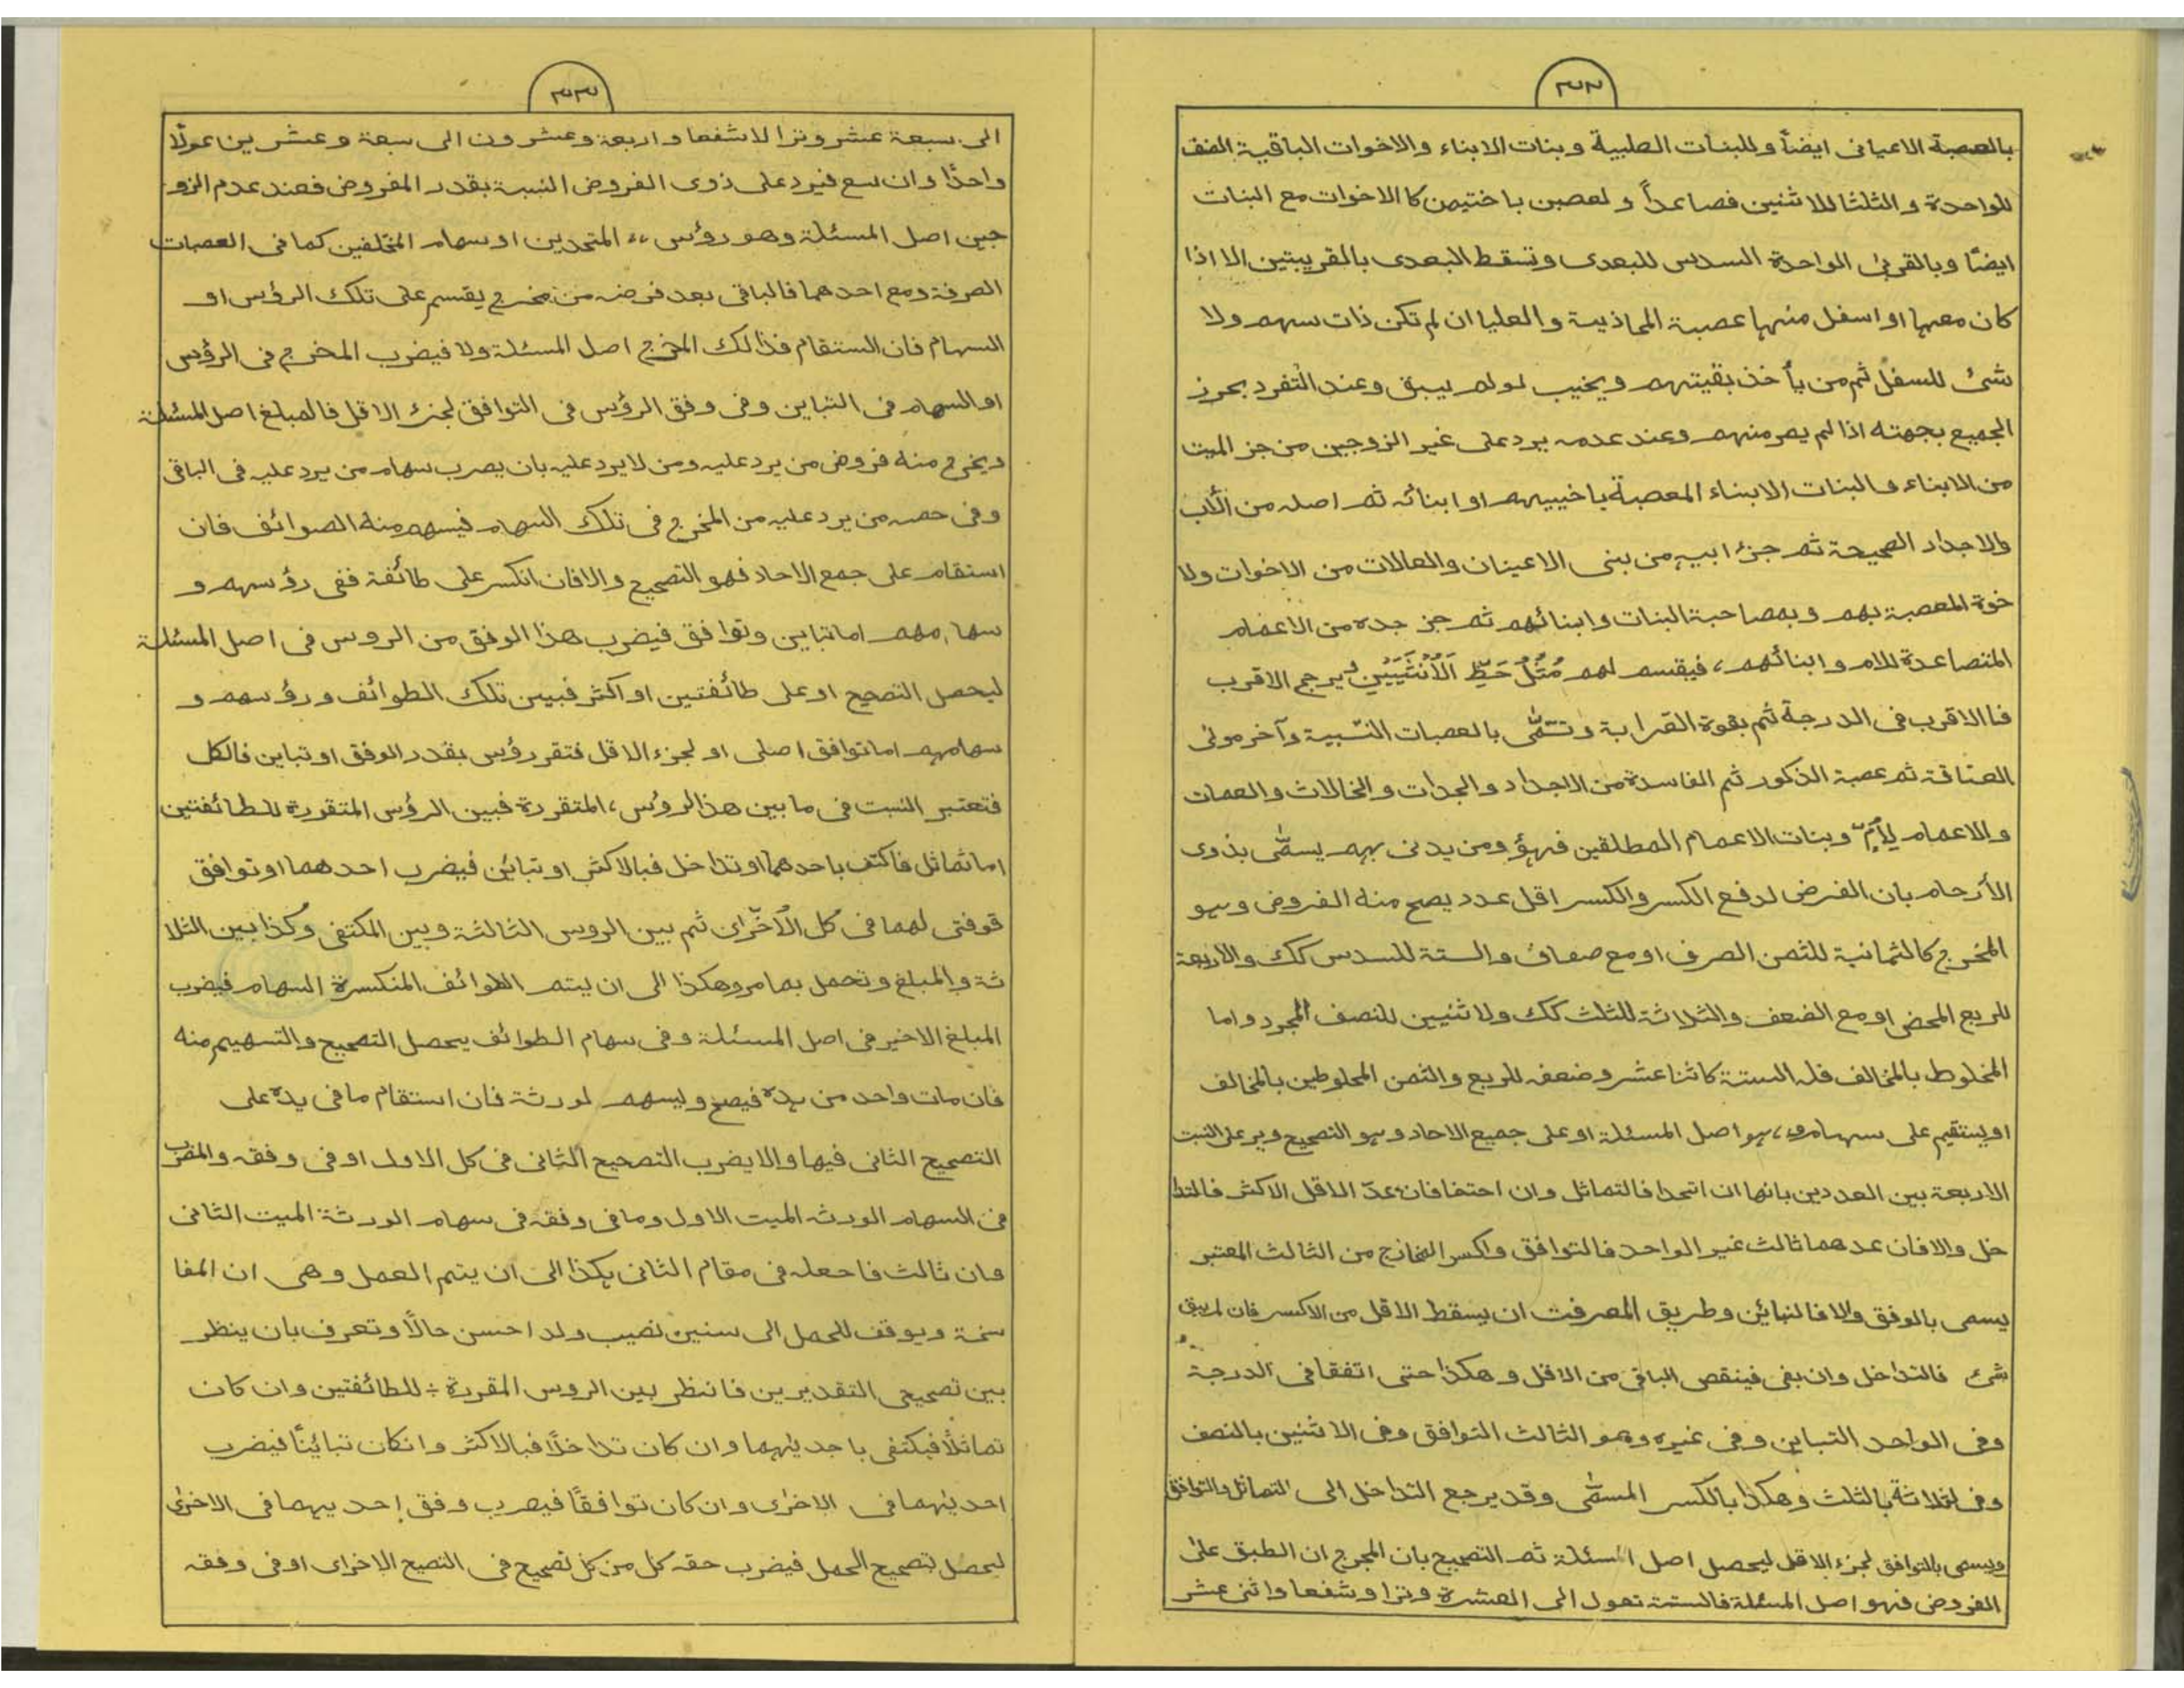 ٣٢
بالعصبة الاعیانی ایضاً وللبنات الصلبیة وبنات الابناء والاخوات الباقیة النفف
للواحدة و الثلثا للاثنین فصاعداً و لعصبن باختیهن کا الاخوات مع البنات
ایضًا وبالقربیٰ الواحدة السدس للبعدی وتسقط البعدی بالقریبتین الا اذا
کان معها او اسفل منها عصبة المحاذیة و العلیا ان لم تکن ذات سهم ولا
شئ للسفلٰ ثم من یأخذ بقیتهم ویخیب لولم یبق وعند التفرد یحرز
الجمیع بجهته اذا لم یعر منهم وعند عدمه یرد علی غیر الزوجین من جز المیت
من الابناء والبنات الابناء المعصبة باخییهم او ابنائه ثم اصله من الأب
والاجداد الصحیحة ثم جزء ابیه من بنی الاعینان والعالات من الاخوات ولا
خوة المعصبة بهم وبمصاحبة البنات وابنائهم ثم جز جده من الاعمام
المتصاعدة للام و ابنائهم، فیقسم لهم مُثلُ حَظِّ اَلاُنثَیَینِ یرجح الاقرب
فا الاقرب فی الدرجة ثم بقوة القرابة وتسمّٰی بالعصبات النّسبیة وآخر مولیٰ
العتاقة ثم عصبة الذکور ثم الفاسدة من الاجداد والجدات و الخالات والعمات
والاعمام لِاُمٍّ وبنات الاعمام المطلقین فهؤ ومن یدنی بهم یسمّٰی بذوی
الأرحام بان الفرض لدفع الکسر والکسر اقل عدد یصح منه الفروض وهو
المخرج کالثمانیة للثمن الصرف او مع صعاف والستة للسدس کک والاربعة
للربع المحض او مع الضعف والثلاثة للثلث کک ولاثنیین للنصف المجرد واما
المخلوط بالمخالف فله الستة کاثنا عشر وضعفه للربع والثمن المحلوطین بالمخالف
اویستقیم علی سهامه، هو اصل المسئلة او علی جمیع الاحاد وهو التصحیح ویر علی النسبت
الاربعة بین العددین بانها ان اتحدا فالتماثل وان احتفافان عدّ الاقل الاکثر فالتدا
خل والافان عدهما ثالث غیر الواحد فالتوافق واکسر الخازج من الثالث المعتبر
یسمی بالوفق والا فالنبائن وطریق المعرفت ان یسقط الاقل من الاکسر فان لم یبق
شئ فالتداخل وان بغی فینقص الباقی من الاقل و هکذا حتی اتفقا فی الدرجة
وفی الواحد التباین وفی غیره وهو الثالث التوافق وفی الاثنین بالنصف
وفی لثلاثة بالثلث وهکذا بالکسر المسمّٰی وقد یرجع التداخل الی التماثل والتوافق
ویسمی بالتوافق لجزء الاقل لیحصل اصل المسئلة ثم التصحیح بان المجرج ان الطبق علیٰ
الفروض فهو اصل المسئلة فالستة تعول الی العشرة وترا وشفعا واثنی عشر
٣٣
الی سبعة عشر وترا لاشفعا واربعة وعشرون الی سبعة وعشرین عولًا
واحدًا وان سع فیرد علی ذوی الفروض النسبة بقدر المفروض فعند عدم الزو
جین اصل المسئلة وهو رؤس المتحدین او سهام المختلفین کما فی العصبات
الصرفة ومع احدهما فالباقی بعد فرضه من مخرج یقسم علی تلک الرؤس او
السهام فان الستقام فذالک المخرج اصل المسئلة ولا فیضرب المخرج فی الرؤس
او السهام فی التباین وفی وفق الرؤس فی التوافق لجزء الاقل فالمبلغ اصل المسئلة
ویخرج منه فروض من یرد علیه ومن لایرد علیه بان یصرب سهام من یرد علیه فی الباقی
وفی حصه من یرد علیه من المخرج فی تلک السهام فیسهم منه الصوائف فان
استقام علی جمع الاحاد فهو التصحیح والافان انکسر علی طائفة ففی رؤسهم و
سهامهم اما تباین وتوافق فیضرب هذا الوفق من الروس فی اصل المسئلة
لیحصل التصحیح او علی طائفتین او اکثر فبین تلک الطوائف ورؤسهم و
سهامهم اما توافق اصلی او لجزء الاقل فتقر رؤس بقدر الوفق او تباین فالکل
فتعتبر النسبت فی ما بین هذا الرؤس، المتقررة فبین الرؤس المتقررة للطائفتین
اما تماثل فاکتف باحدهما او تداخل فبالاکثر او تبائن فیضرب احدهما او توافق
فوفقی لهما فی کل الاُخرای ثم بین الروس الثالثة وبین المکتفی وکذا بین الثلا
ثة والمبلغ وتحمل بما مر وهکذا الی ان یتم الطوائف المنکسرة السهام فیضرب
المبلغ الاخیر فی اصل المسئلة وفی سهام الطوائف یحصل التصحیح والتسهیم منه
فان مات واحد من یده فیصح ولیسهم لورثة فان استقام ما فی یده علی
التصحیح الثانی فیها والا یضرب التصحیح الثانی فی کل الاول او فی وفقه والمضرب
فی السهام الورثه المیت الاول وما فی وفقه فی سهام الورثة المیت الثانی
وان ثالث فاحعله فی مقام الثانی هکذا الی ان یتم العمل وهی ان المفا
سخة ویوقف للحمل الی سنین نصیب ولد احسن حالًا وتعرف بان ینظر
بین تصحیحی التقدیرین فانظر بین الروس المقررة للطائفتین وان کان
تماثلاً فیکتفی باحدیٰهما وان کان تداخلًا فبالاکثر وانکان تبائینًا فیضرب
احدیٰهما فی الاخرٰی وان کان توافقًا فیصرب وفق احدیهما فی الاخرٰی
لیحصل تصحیح الحمل فیضرب حقه کل من کل تصحیح فی التصیح الاخرای او فی وفقه